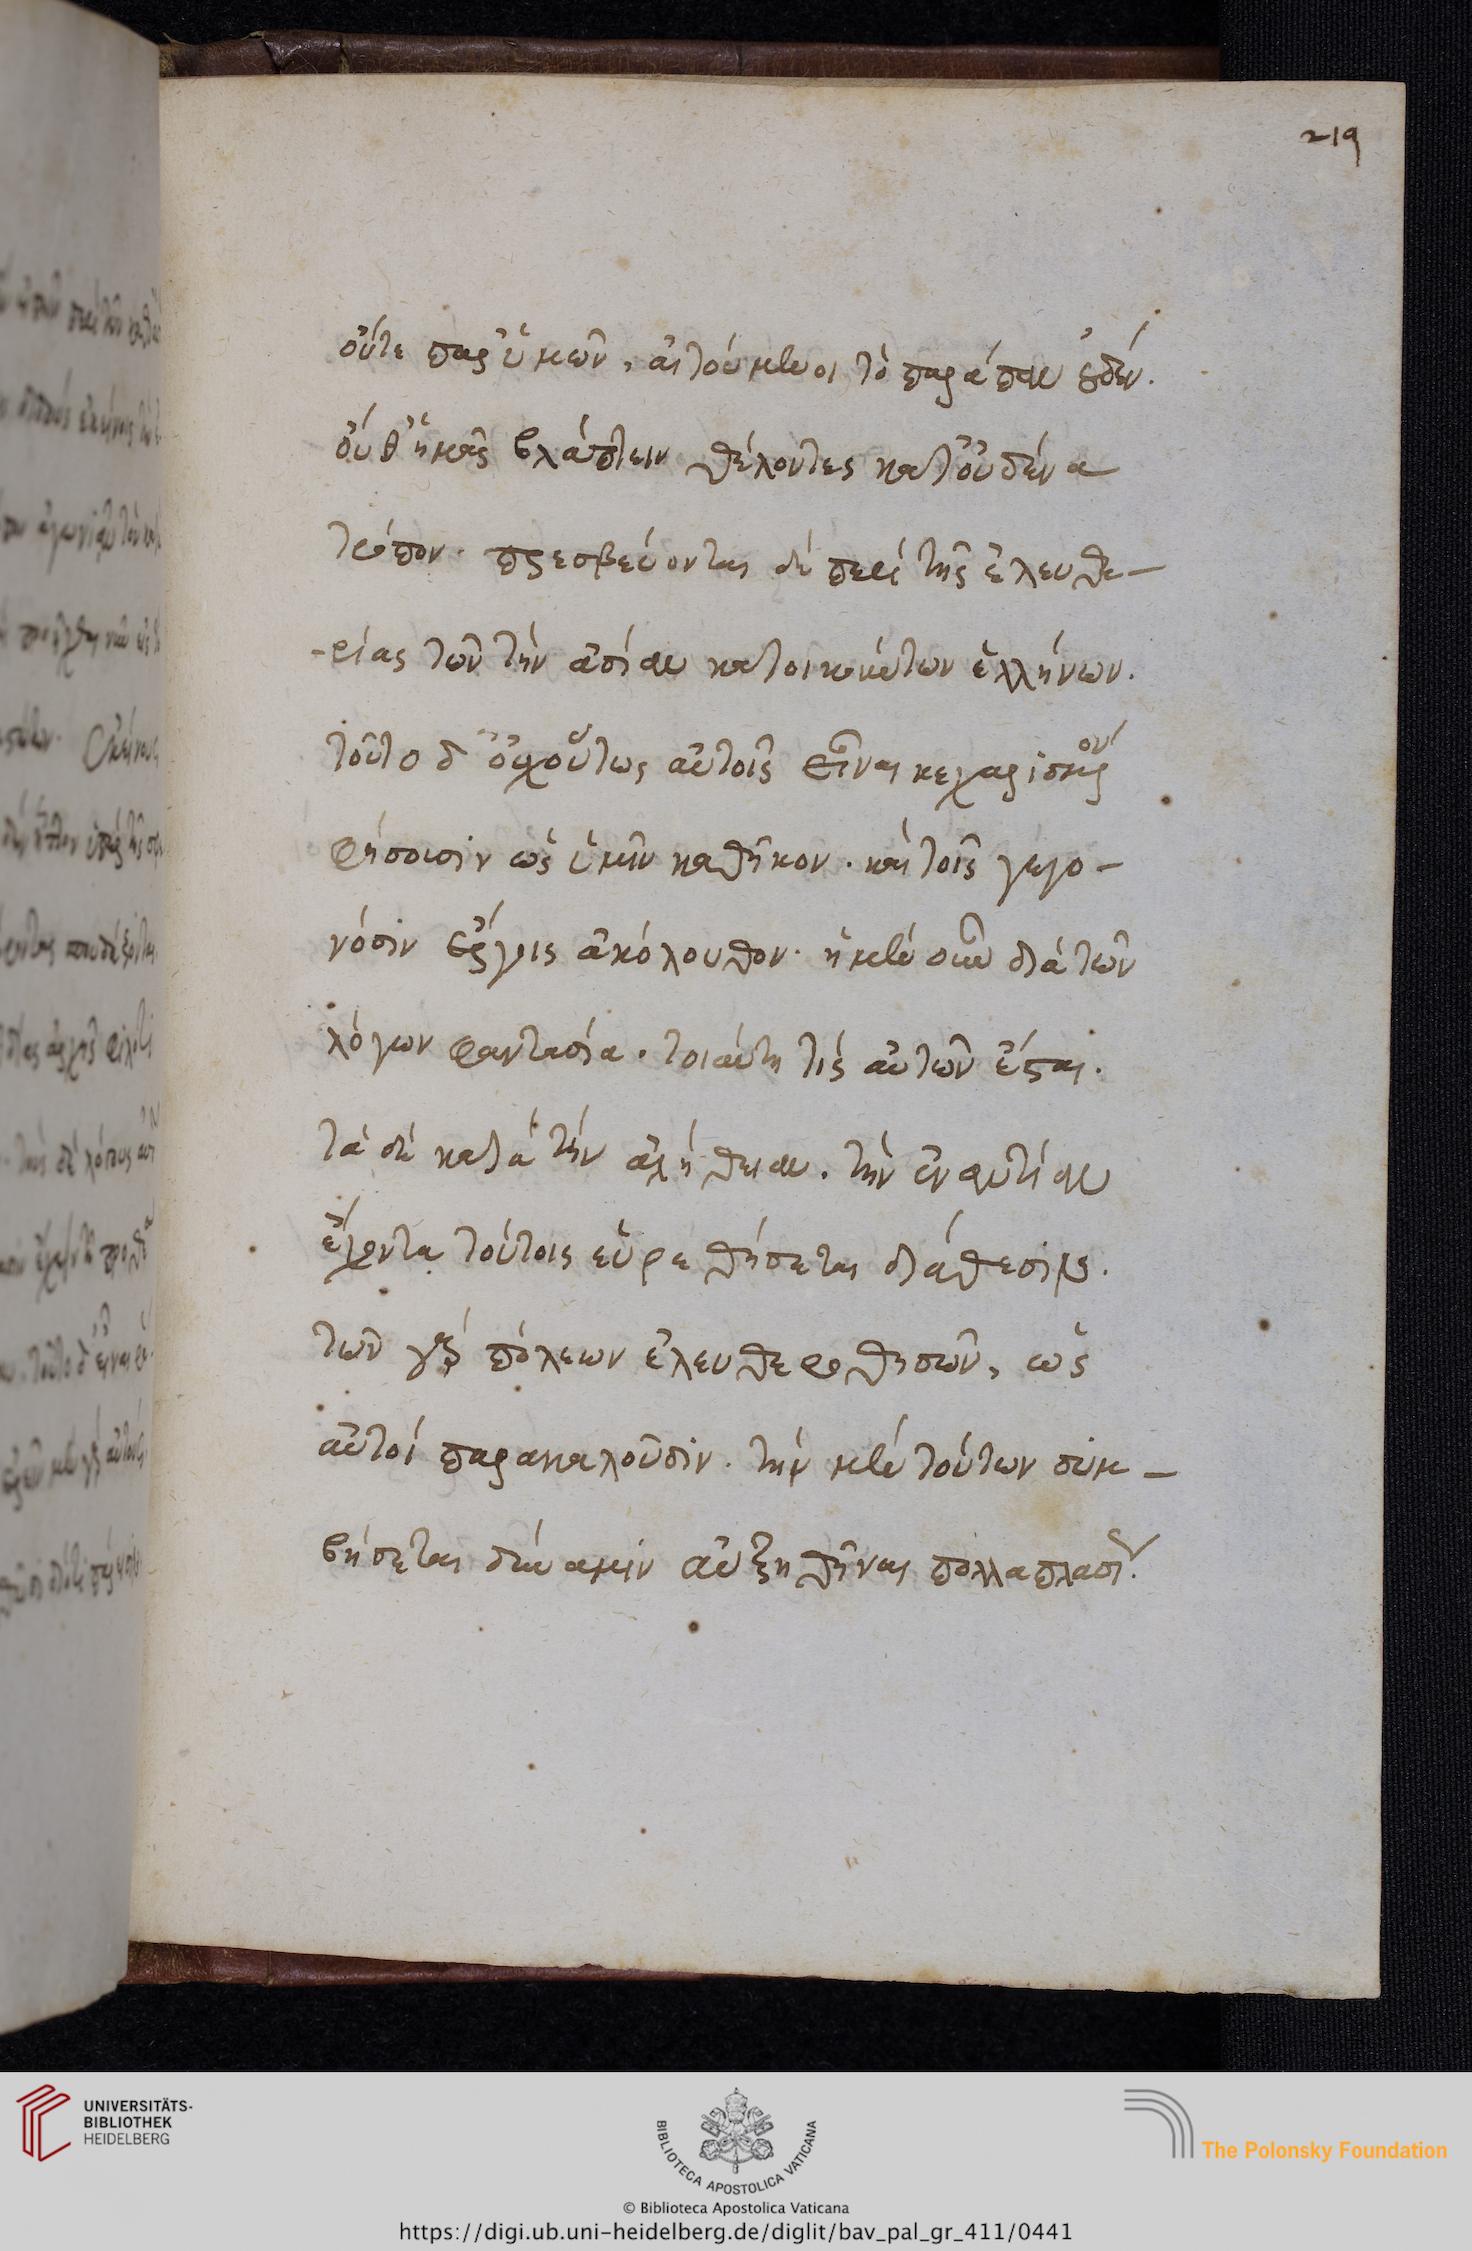 219
οὔτε παρ' ὑμῶν, αἰτούμενοι τὸ παράπαν οὐδέν.
οὔθ' ἡμᾶς βλάπτειν θέλοντες κατ' οὐδένα
τρόπον. πρεσβεύονται δὲ περὶ τῆς ἐλευθε-
-ρίας τῶν τὴν ἀσίαν κατοικούντων ἑλλήνων.
τοῦτο δ' οὐχ οὕτως αὐτοῖς εἶναι κεχαρισμένον
φήσουσιν ὡς ὑμῖν καθῆκον. καὶ τοῖς γεγο-
νόσιν ἔργοις ἀκόλουθον. ἡ μὲν οὖν διὰ τῶν
λόγων φαντασία. τοιαύτη τίς αὐτῶν ἔσται.
τὰ δὲ κατὰ τὴν ἀλήθειαν. τὴν ἐναντίαν
ἔχοντα τούτοις εὑρεθήσεται διάθεσιν.
τῶν γὰρ πόλεων ἐλευθερωθεισῶν, ὡς
αὐτοὶ παρακαλοῦσιν. τὴν μὲν τούτων συμ-
βήσεται δύναμιν αὐξηθῆναι πολλαπλασίως.
UNIVERSITÄTS-
BIBLIOTHEK
HEIDELBERG
BIBLIOTECA APOSTOLICA VATICANA
© Biblioteca Apostolica Vaticana
The Polonsky Foundation
https://digi.ub.uni-heidelberg.de/diglit/bav_pal_gr_411/0441